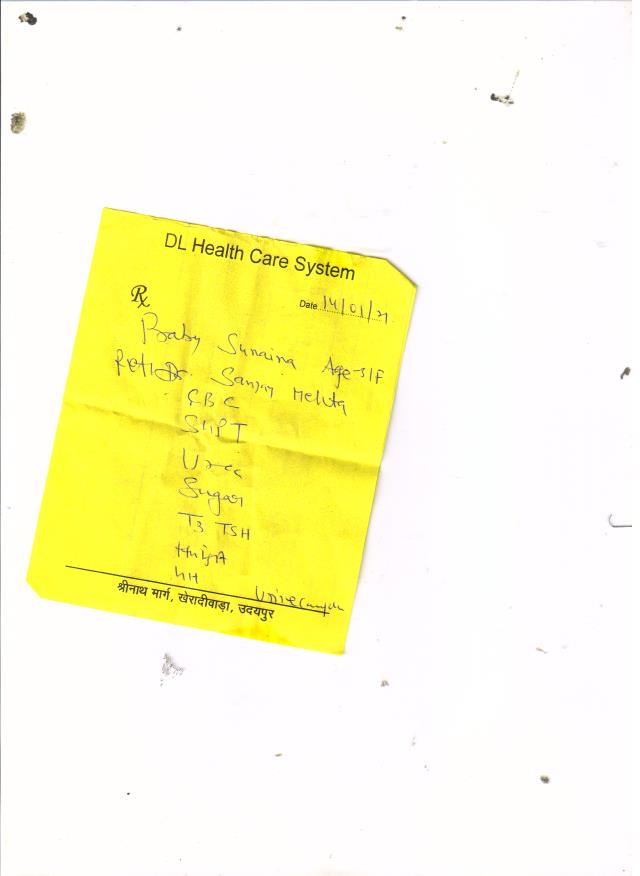 DL Health Care System
Rx
Date 14/01/21
Baby Sunaina Age-31F
Ref. Dr. Sanjay Mehta
CBC
SGPT
Urea
Sugar
T3 TSH
Urine
श्रीनाथ मार्ग, खेरादीवाड़ा, उदयपुर